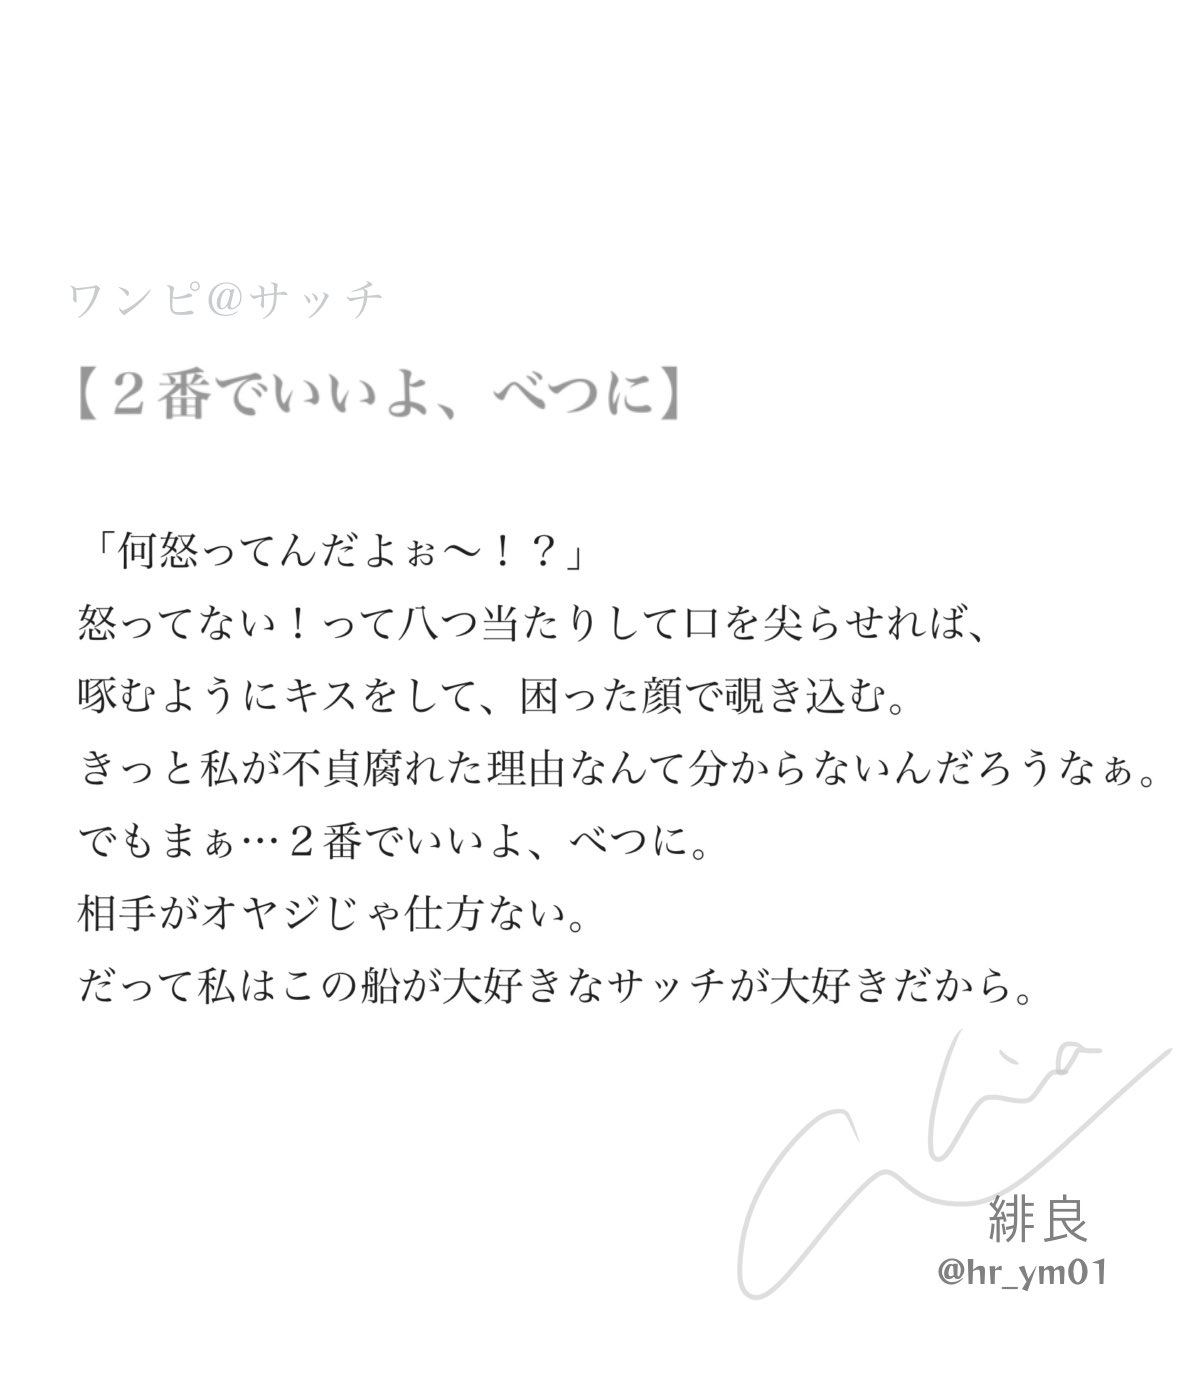 ワンピ@サッチ
【２番でいいよ、べつに】
「何怒ってんだよぉ〜！？」
怒ってない！って八つ当たりして口を尖らせれば、
啄むようにキスをして、困った顔で覗き込む。
きっと私が不貞腐れた理由なんて分からないんだろうなぁ。
でもまぁ…２番でいいよ、べつに。
相手がオヤジじゃ仕方ない。
だって私はこの船が大好きなサッチが大好きだから。
緋良
@hr_ym01